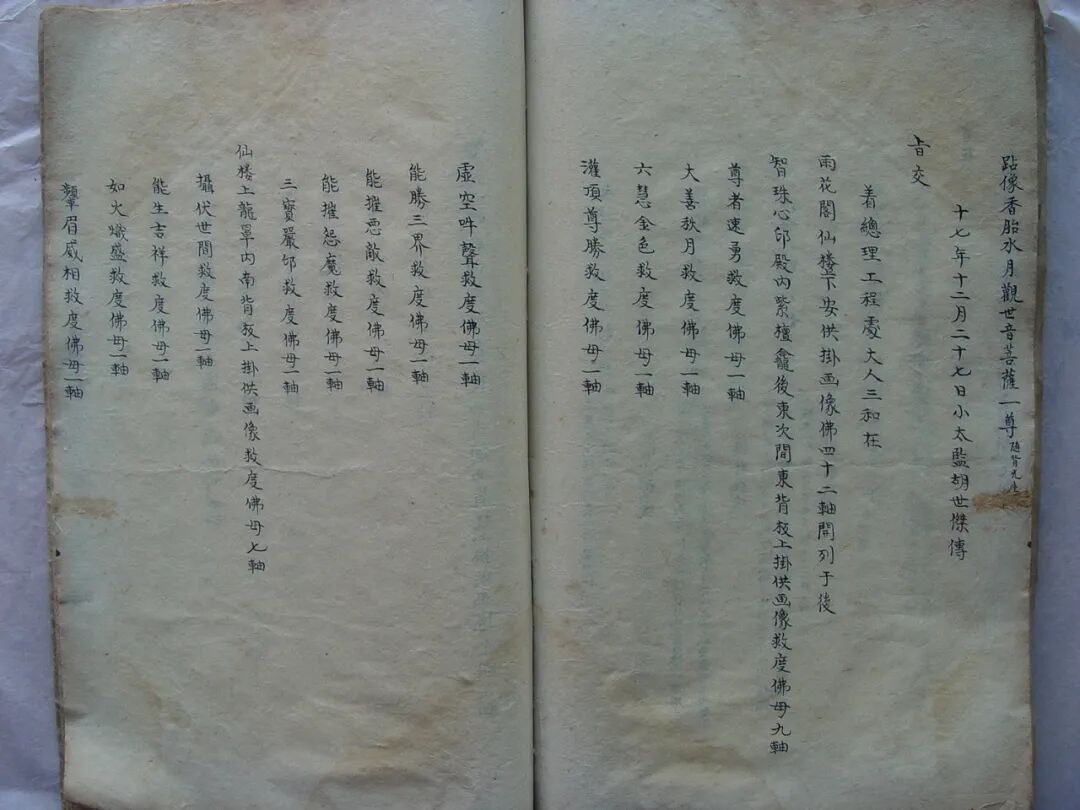 跕像香胎水月觀世音菩薩一尊隨背光座
十七年十二月二十七日小太監胡世傑傳
旨交
着總理工程處大人三和在
雨花閣仙楼下安供掛画像佛四十二軸開列于後
智珠心印殿内紫檀龕後東次間東背板上掛供画像救度佛母九軸
尊者速勇救度佛母一軸
大善秋月救度佛母一軸
六慧金色救度佛母一軸
灌頂尊勝救度佛母一軸
虛空吽聲救度佛母一軸
能勝三界救度佛母一軸
能摧惡敵救度佛母一軸
能摧怨魔救度佛母一軸
三寶嚴印救度佛母一軸
仙楼上龍罩内南背板上掛供画像救度佛母七軸
攝伏世間救度佛母一軸
能生吉祥救度佛母一軸
如火熾盛救度佛母一軸
顰眉威相救度佛母一軸